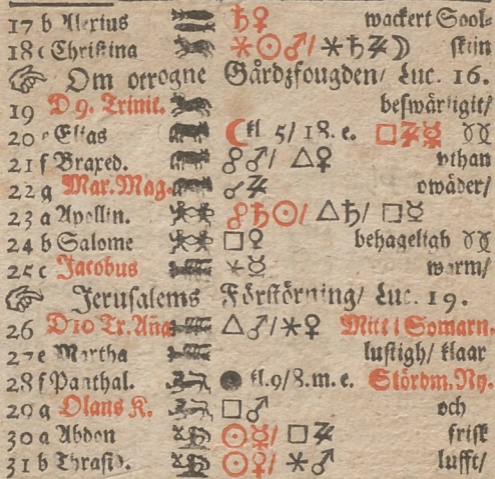 17 b Alexius ♄♀ wackert Sool-
18 c Christina ⚹☉♂/ ⚹♄♃☽ skijn
☞ Om otrogne Gårdzfougden/ Luc. 16.
19 D 9. Trinit. beswärligit/
20 e Elias ☾ kl 5/ 18. e. □♃☿
21 f Praxed. ☍♂/ △♀ vthan
22 g Mar. Mag. ☌♃ owäder/
23 a Apollin. ☍♄☉/ △♄/ □☿
24 b Salome □♀ behageligh
25 c Jacobus ⚹☿ warm/
☞ Jerusalems Förstörning/ Luc. 19.
26 D 10 Tr. Aña △♂/ ⚹♀ Mitt i Somarn.
27 e Martha lustigh/ klaar
28 f Panthal. ● kl. 9/ 8. m. e. Skördm. Ny.
29 g Olaus K. □♂ och
30 a Abdon ☉☿/ □♃ frisk
31 b Thrasib. ☉♀/ ⚹♂ lufft/